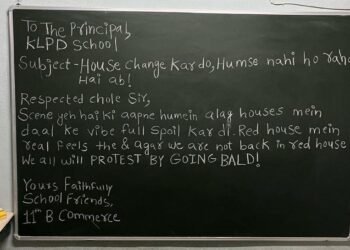 To The Principal,
KLPD School
Subject - House change kar do, Humse nahi ho raha
Hai ab!
Respected chole Sir,
Scene yeh hai ki aapne humein alag houses mein
daal ke vibe full spoil kar di. Red house mein
real feels the & agar we are not back in red house
We all will PROTEST BY GOING BALD!
Yours Faithfully
School Friends,
11th B Commerce